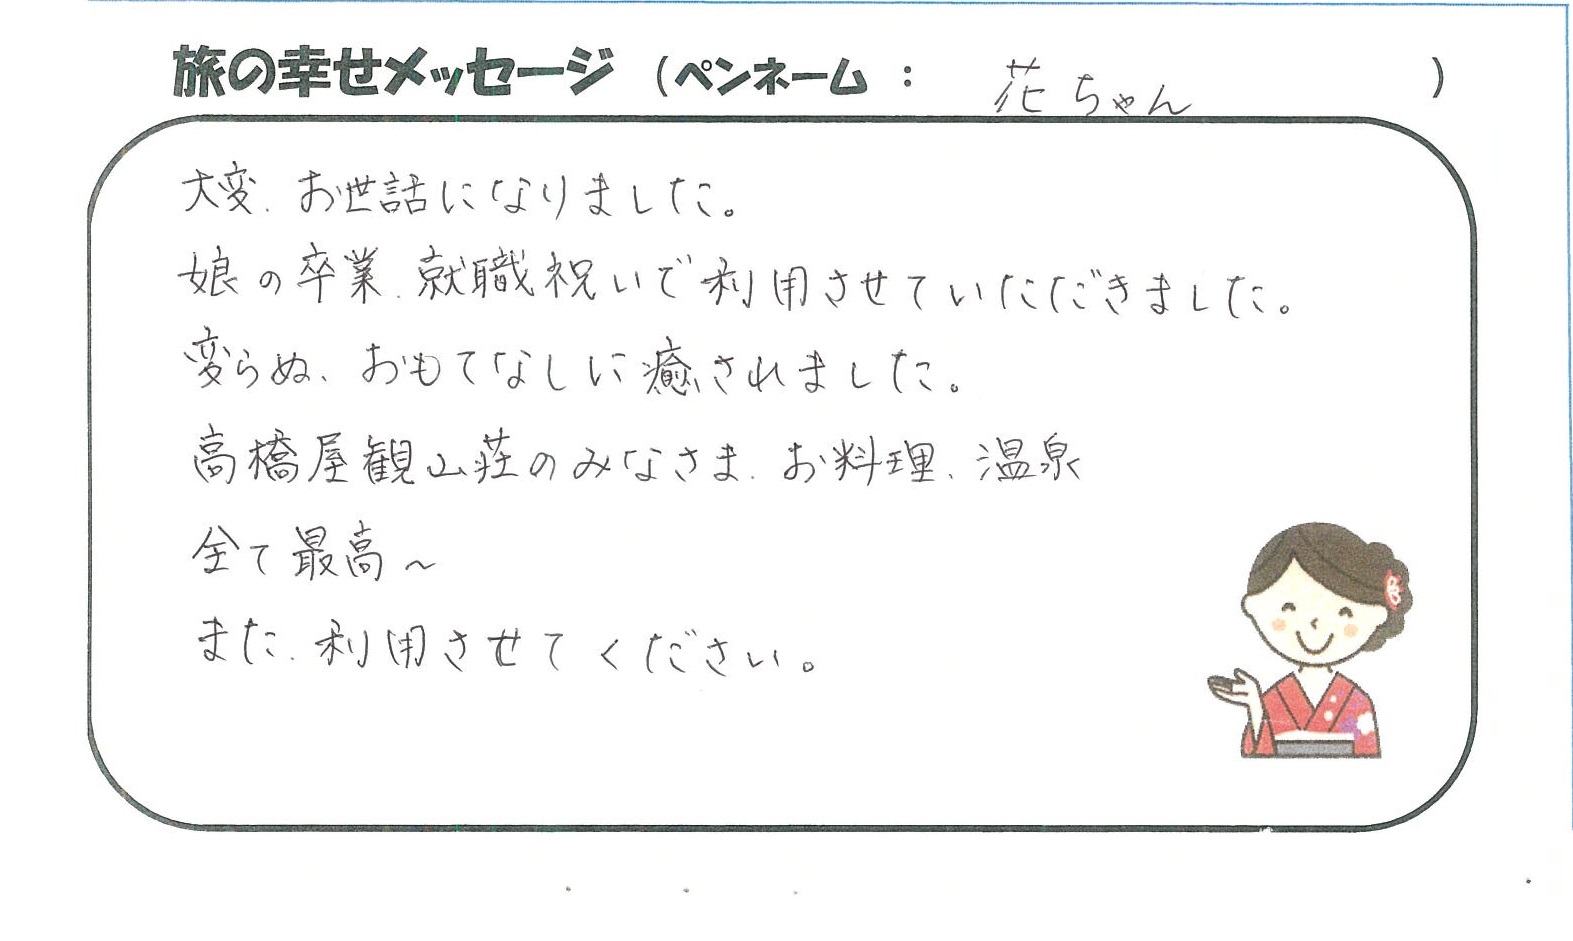 旅の幸せメッセージ (ペンネーム : 花ちゃん )
大変、お世話になりました。
娘の卒業、就職祝いで利用させていただきました。
変らぬ、おもてなしに癒されました。
高橋屋観山荘のみなさま、お料理、温泉
全て最高~
また、利用させてください。